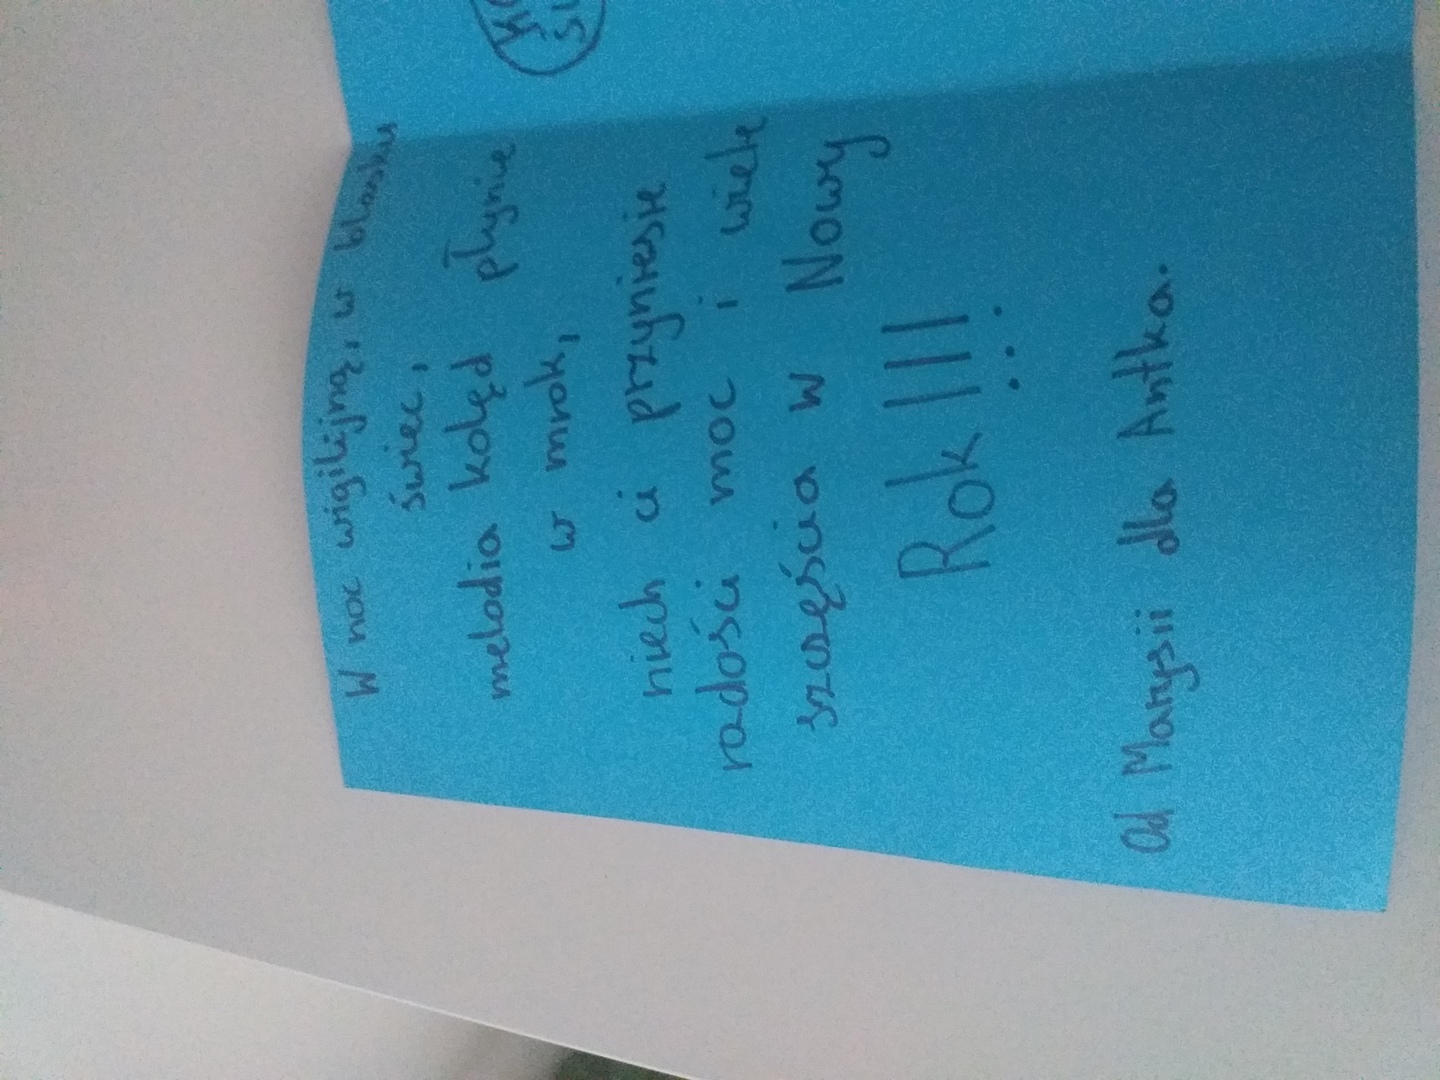 W noc wigilijną, w blasku
świec,
melodia kolęd płynie
w mrok,
niech ci przyniesie
radości moc i wiele
szczęścia w Nowy
Rok!!!
Od Marysii dla Antka.